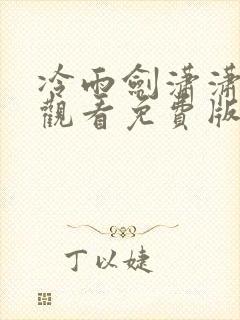 冷雨劍瀟瀟
觀看免費版
丁以婕